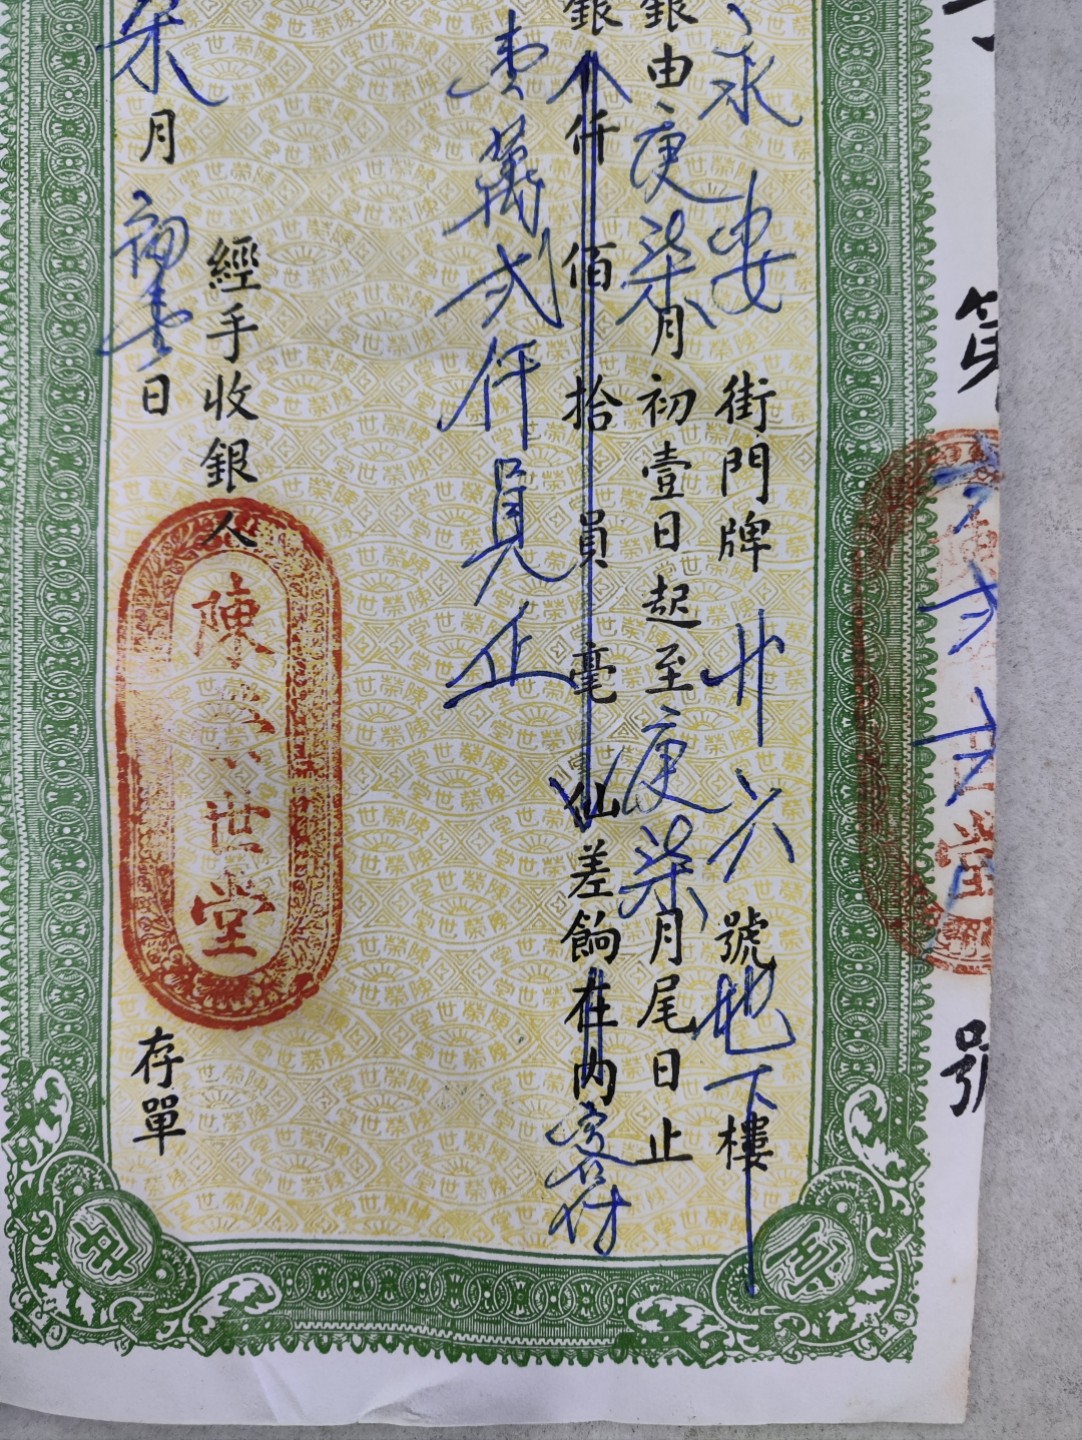 號
永安街門牌廿六號地下樓
銀由庚柒月初壹日起至庚柒月尾日止
銀仟佰拾員毫仙差餉在內客付
壹萬弍仟員正
經手收銀人
陳榮世堂
柒月初壹日
存單